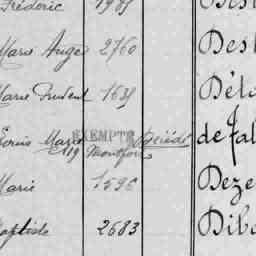 Frédéric 1985 Dest
Marie Ange 2760 Dest
Marie Prudent 1631 Déta
Louis Marie EXEMPTÉ Décédé de Fal
119 Montfort
Marie 1596 Deze
Baptiste 2683 Dibo